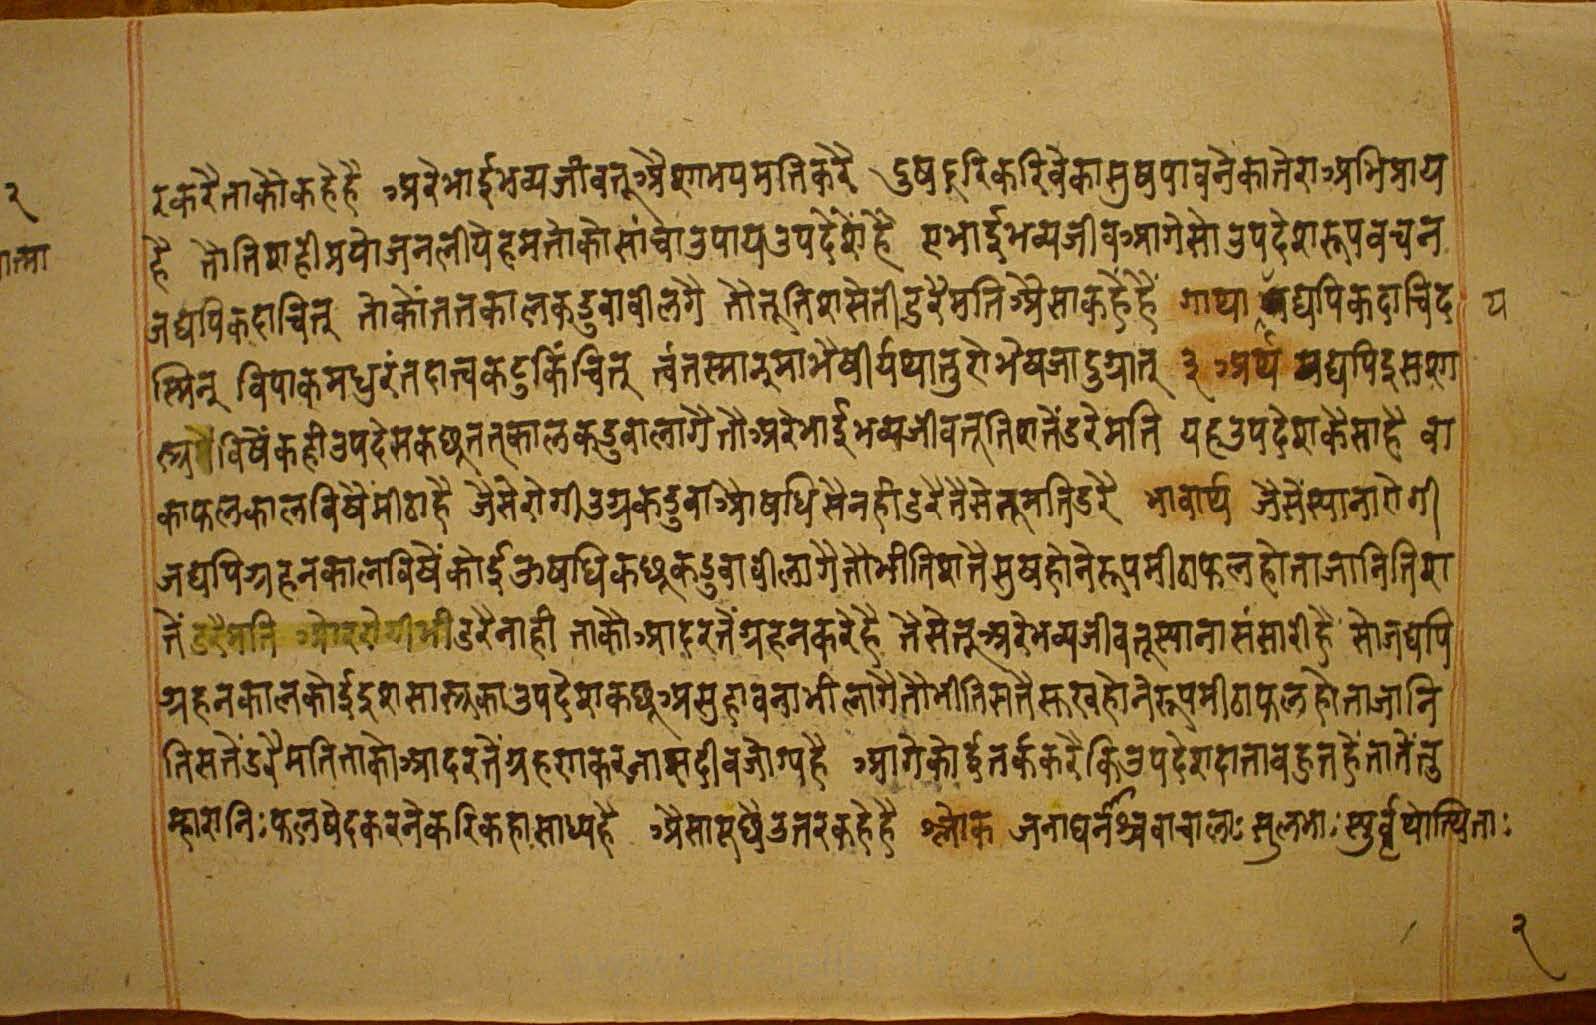 २
रकरैताकौकहेहै अरेभाईभव्यजीवतूऔैशाभयमतिकरै दुषदूरिकरिवेकासुषपावनैकातेराअभिप्राय
त्मा
है तौतिशहीप्रयोजनलीयेहमतोकोसांचाउपायउपदेशेंहैं एभाईभव्यजीवआगेसोउपदेशरूपवचन
जद्यपिकदाचित् तोकोंततकालकडुवाबीलगै तौतूतिशसेतीडरैमतिऔसाकहैहैं गाथा यद्यपिकदाचिद य
स्मिन् विपाकमधुरंतदात्वकटुकिंचित् त्वंतस्मान्माभैषीर्यथातुरोभेषजादुग्रात् ३ अर्थ यद्यपिइसशा
स्त्र विषेंकहीउपदेसकछूततकालकडुवालागैतौअरेभाईभव्यजीवतूतिशतेंडरेमति यहउपदेशकैसाहै वा
काफलकालविषैमीठाहै जैसेरोगीउग्रकडुवाऔषधिसैनहीडरैतैसेतूमतिडरै भावार्थ जैसेंस्यानारोगी
जद्यपिग्रहनकालविषैंकोईऊषधिकछूकडुवाबीलागैतौभीतिशतैसुषहोनेरूपमीठाफलहोताजानितिश
तेंडरैमति औररोगीभीडरैनाही ताकौआदरतेंग्रहनकरेहै तैसेतूअरेभव्यजीवतूस्यानासंसारीहै सोजद्यपि
ग्रहनकालकोईइशसास्त्रकाउपदेशकछूअसुहावनाभीलागैतौभीतिसतैसुखहोनेरूपमीठाफलहोताजानि
तिसतेंडरैमतिताकोआदरतेंग्रहणकरनासदीवजोग्यहै आगेकोईतर्ककरैकिउपदेशदातावहुतहेंतातेंतु
म्हारानिःफलषेदकरनेकरिकहासाध्यहै औसापूछैउतरकहेहै श्लोक जनाघनाश्चवाचालाः सुलभाः स्युर्वृथोत्थिताः
२